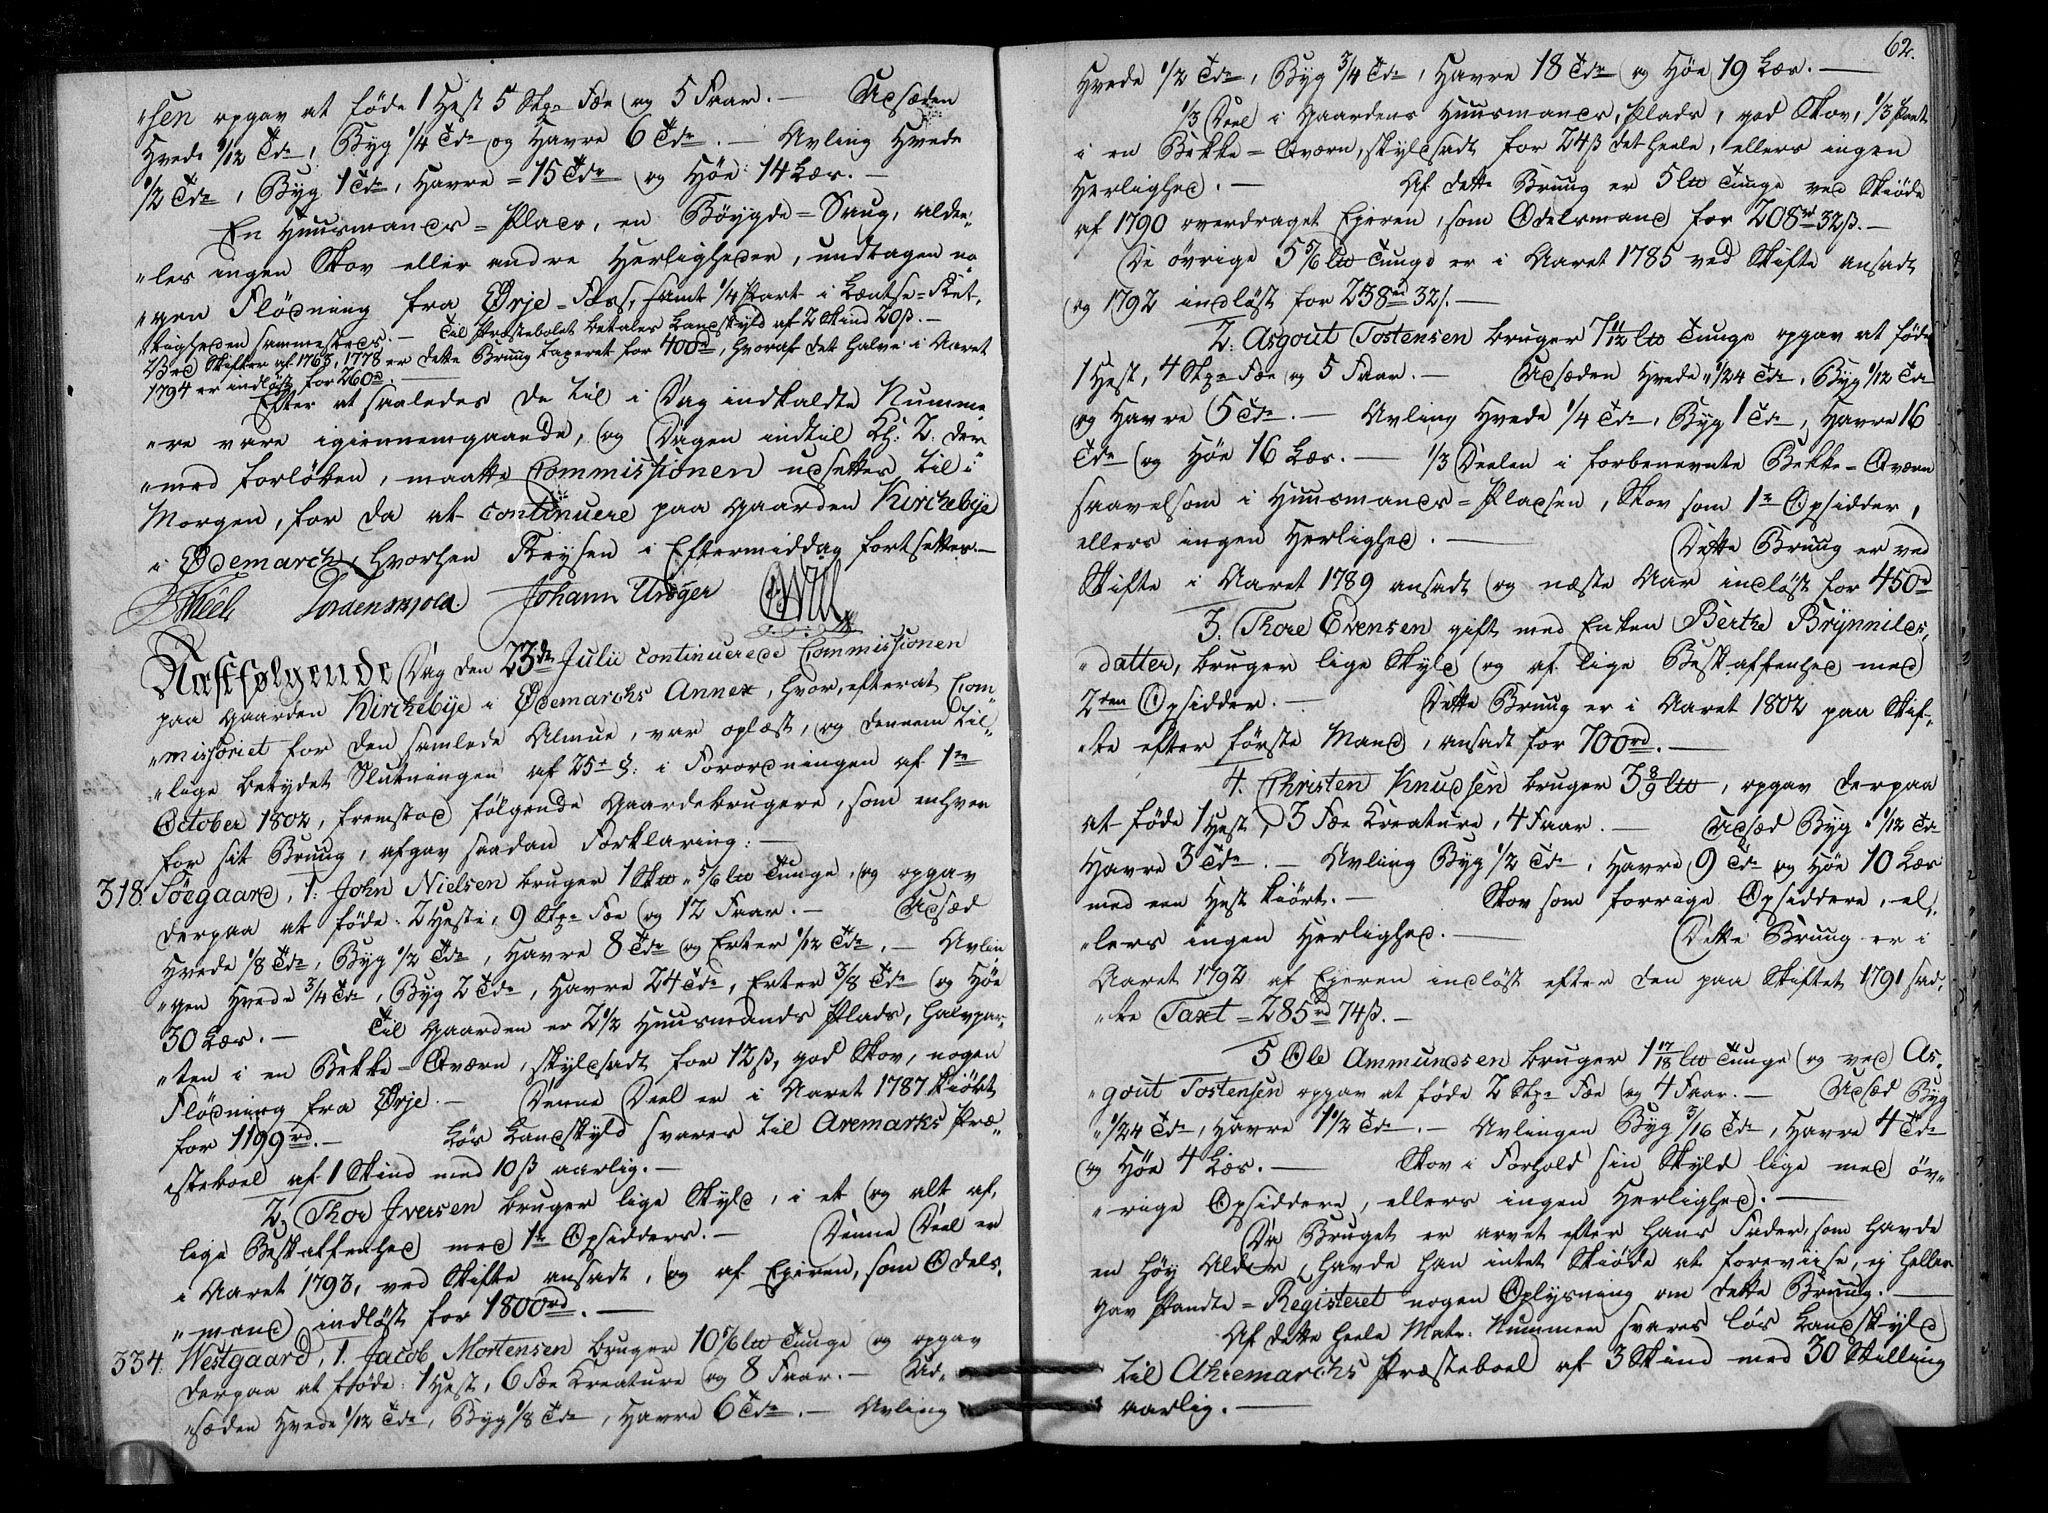 "sen opgav at føde 1 Hest 5 Stkr Fæe og 5 Faar. — Udsæden
Hvede 1/12 Tdr, Byg 1/4 Tdr og Havre 6 Tdr. — Avling Hvede
1/2 Tdr, Byg 1 Tdr, Havre = 15 Tdr og Høe 14 Læs. —
En Huusmands = Plads, en Bøygde = Saug, aldee,
"les ingen Skov eller andre Herligheder, undtagen no
"gen Flødning fra Ørje = Foss, samt 1/4 Part i Lentse = Ret,
"tigheden sammesteds. — Til Præstebolet betales Landskyld af 2 Skind 20 ß. —
Ved Skifter af 1763, 1778 er dette Bruug taxeret for 400 rd, hvoraf det halve i Aaret
1794 er indløst for 260 rd
Efter at saaledes de til i Dag indkaldte Numme
"re vare igiennemgaaede, og Dagen indtil Kl: 2 der
"med forløben, maatte Commissionen udsettes til i
Morgen, for da at continuere paa Gaarden Kirchebÿe
i Ødemarch, hvorhen Reysen i Eftermiddag fortsettes. —
Tordenskjold. Johann Krøger
Næstfølgende Dag den 23de Julii continuerede Commissionen
paa Gaarden Kirchebÿe i Ødemarchs Annex, hvor, efterat Com
"missoriet for den samlede Almue, var oplæst, og dennem til,
"lige betydet Slutningen af 25t §: i Forordningen af 1te
October 1802, fremstod følgende Gaardebrugere, som enhver
for sit Bruug, afgav saadan Forklaring: —
318. Søegaard, 1. John Nielsen bruger 1 Skw "5/6 lw Tunge, og opgav
derpaa at føde: 2 Heste, 9 Stkr Fæe og 12 Faar. — Udsæd
Hvede 1/8 Tdr, Byg 1/2 Tdr, Havre 8 Tdr og Erter 1/12 Tdr. — Avlin
"gen Hvede 3/4 Tdr, Byg 2 Tdr, Havre 24 Tdr, Erter 3/8 Tdr og Høe
30 Læs. — Til Gaarden er 2 1/2 Huusmands Plads, halvpar,
"ten i en Bekke = Qværn, skyldsadt for 12 ß, god Skov, nogen
Flødning fra Ørje. — Denne Deel er i Aaret 1787 kiøbt
for 1199 rd. — Løs Landskyld svares til Aremarks Præ,
"steboel af 1 Skind med 10 ß aarlig. —
2, Thor Iversen bruger lige Skyld, i et og alt af,
lige Beskaffenhed med 1te Opsidders. — Denne Deel er
i Aaret 1793, ved Skifte ansadt, og af Ejeren, som Odels,
"mand indløst for 1800 rd. —
334. Westgaard, 1. Jacob Mortensen bruger 10 5/6 lw Tunge og opgav
derpaa at føde: 1 Hest, 6 Fæe Kreature og 8 Faar. — Ud,
"sæden Hvede 1/12 Tdr, Byg 1/8 Tdr, Havre 6 Tdr. — Avling
62.
Hvede 1/2 Tdr, Byg 3/4 Tdr, Havre 18 Tdr og Høe 19 Læs. —
1/3 Deel i Gaardens Huusmands, Plads, god Skov, 1/3 Part
i en Bekke = Qværn, skyldsadt for 24 ß det heele, ellers ingen
Herlighed. — Af dette Bruug er 5 lw Tunge ved Skiøde
af 1790 overdraget Ejeren, som Odelsmand for 208 rd 32 ß. —
De øvrige 5 5/6 lw Tunge er i Aaret 1785 ved Skifte ansadt
og 1792 indløst for 238 rd 32 ß. —
2. Asgout Tostensen bruger 7 11/12 lw Tunge opgav at føde
1 Hest, 4 Stkr Fæe og 5 Faar. — Udsæden Hvede "1/24 Tdr, Byg 1/12 Tdr
og Havre 5 Tdr. — Avling Hvede 1/4 Tdr, Byg 1 Tdr, Havre 16
Tdr og Høe 16 Læs. — 1/3 Deelen i forbenevnte Bekke = Qværn
saavelsom i Huusmands = Pladsen, Skov som 1te Opsidder,
ellers ingen Herlighed. — Dette Bruug er ved
Skifte i Aaret 1789 ansadt og næste Aar indløst for 450 rd
3. Thore Evensen gift med Enken Berthe Brÿnnilds,
"datter, bruger lige Skyld og af lige Beskaffenhed med
2den Opsidder. — Dette Bruug er i Aaret 1802 paa Skif,
"te efter første Mand, ansadt for 700 rd. —
4. Christen Knudsen bruger 3 8/9 lw, opgav derpaa
at føde 1 Hest, 3 Fæe Kreature, 4 Faar. — Udsæd Byg "1/12 Tdr
Havre 3 Tdr. — Avling Byg 1/2 Tdr, Havre 9 Tdr og Høe 10 Læs
med een Hest kiørt. — Skov som forrige Opsiddere, el,
"lers ingen Herlighed. — Dette Bruug er i
Aaret 1792 af Ejeren indløst efter den paa Skiftet 1791 sad,
"te Taxt = 285 rd 74 ß. —
5 Ole Ammundsen bruger 1 17/18 lw Tunge og ved As,
"gout Tostensen opgav at føde 2 Stkr Fæe og 4 Faar. — Udsæd Byg
"1/24 Tdr, Havre 1 1/2 Tdr. — Avlingen Byg 3/16 Tdr, Havre 4 Tdr
og Høe 4 Læs. — Skov i Forhold sin Skyld lige med øv,
"rige Opsiddere, ellers ingen Herlighed. —
Da Bruget er arvet efter hans Fader, som havde
en høy Alder, havde han intet Skiøde at foreviise, ej heller
gav Pandte = Registeret nogen Oplysning om dette Bruug. —
Af dette heele Matr. Nummer svares løs Landskyld
til Ahremarchs Præsteboel af 3 Skind med 30 Skilling
aarlig. —